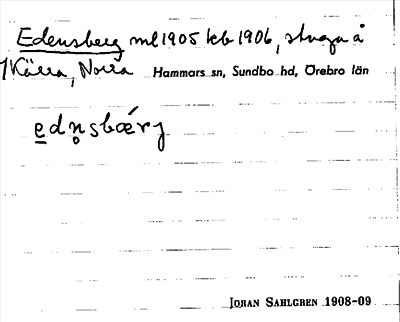 Edensberg ml 1905 kb 1906, stuga å
Kärra, Norra Hammars sn, Sundbo hd, Örebro län
edn̥sbærj
JOHAN SAHLGREN 1908-09